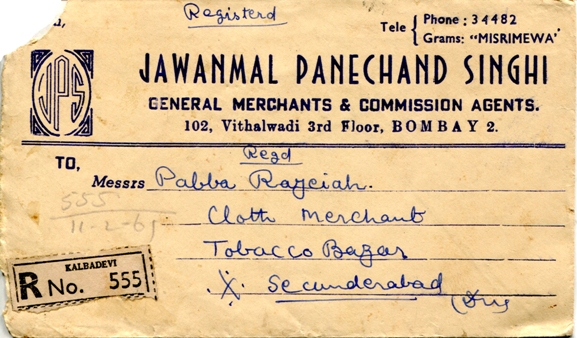 Registerd
Tele { Phone : 34482
Grams: "MISRIMEWA"
JPS
JAWANMAL PANECHAND SINGHI
GENERAL MERCHANTS & COMMISSION AGENTS.
102, Vithalwadi 3rd Floor, BOMBAY 2.
Regd
TO,
Messrs Pabba Rajeiah.
Cloth Merchant
555
11-2-61
Tobacco Bazar
Secunderabad
KALBADEVI
R No. 555